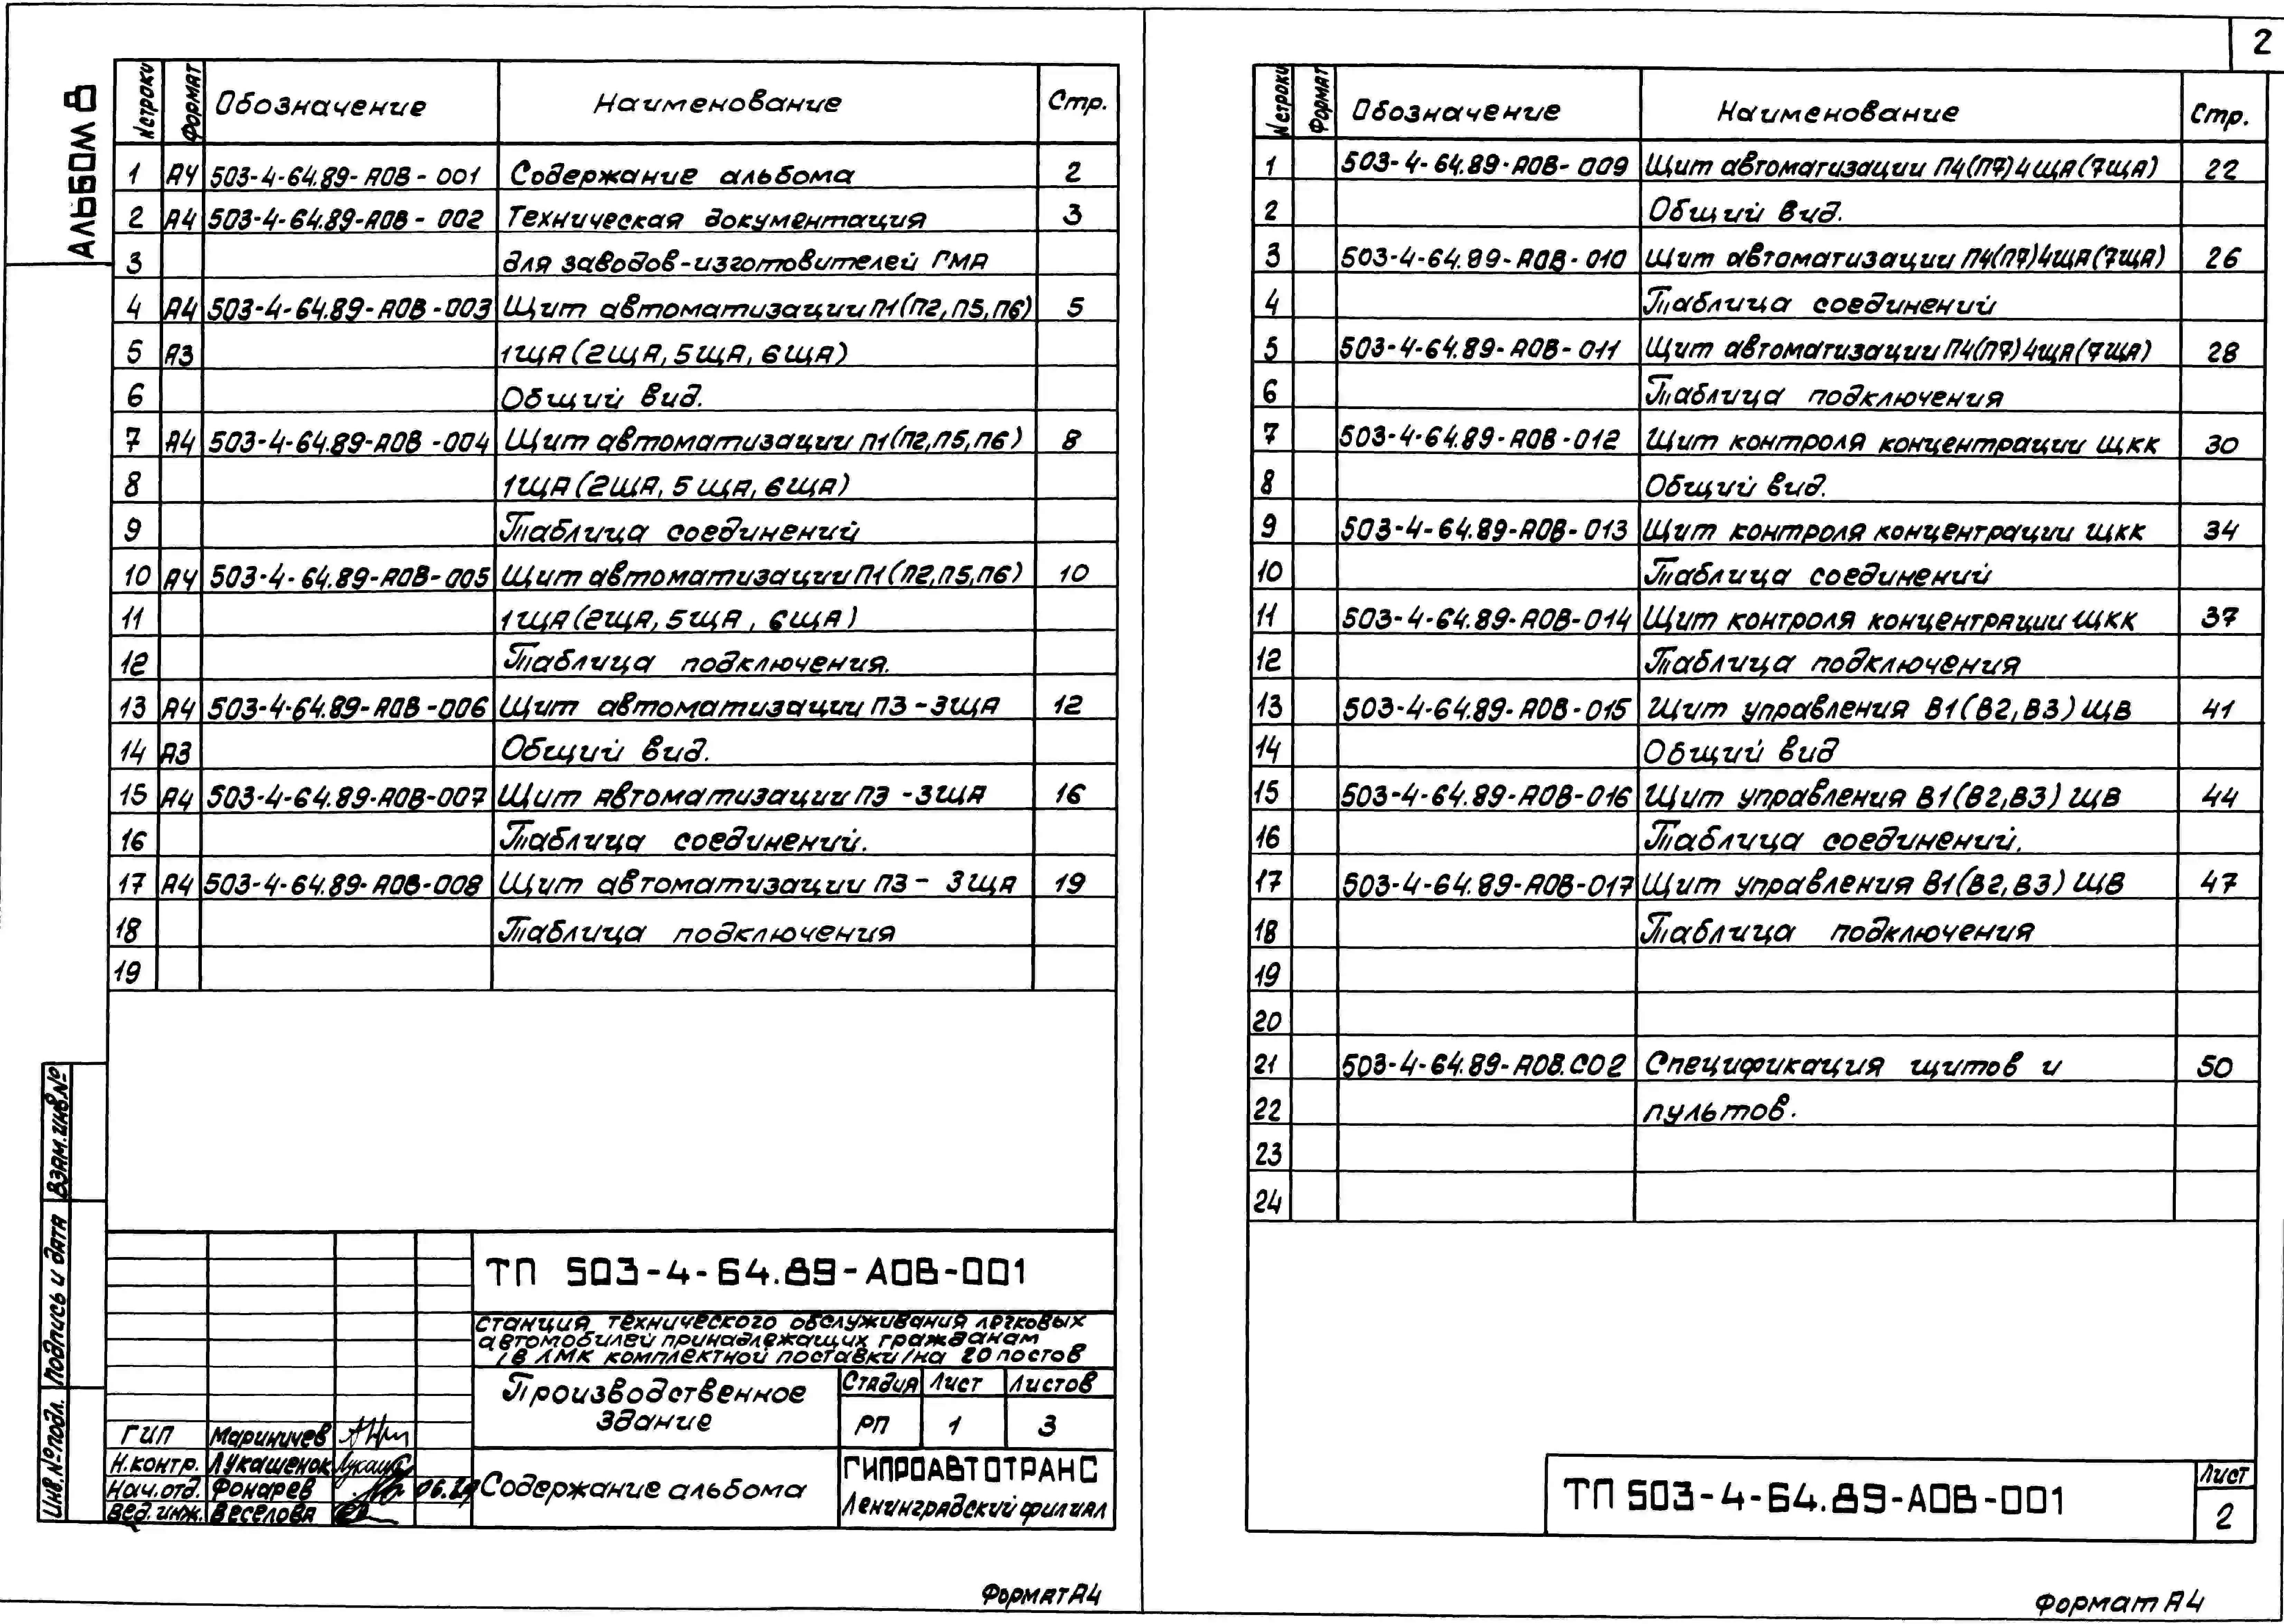 АЛЬБОМ 8
N строки Формат Обозначение Наименование Стр.
1 А4 503-4-64.89-АОВ-001 Содержание альбома 2
2 А4 503-4-64.89-АОВ-002 Техническая документация 3
3 для заводов-изготовителей ГМА
4 А4 503-4-64.89-АОВ-003 Щит автоматизации П1(П2,П5,П6) 5
5 А3 1ЩА(2ЩА,5ЩА,6ЩА)
6 Общий вид.
7 А4 503-4-64.89-АОВ-004 Щит автоматизации П1(П2,П5,П6) 8
8 1ЩА(2ЩА,5ЩА,6ЩА)
9 Таблица соединений
10 А4 503-4-64.89-АОВ-005 Щит автоматизации П1(П2,П5,П6) 10
11 1ЩА(2ЩА,5ЩА,6ЩА)
12 Таблица подключения.
13 А4 503-4-64.89-АОВ-006 Щит автоматизации П3-3ЩА 12
14 А3 Общий вид.
15 А4 503-4-64.89-АОВ-007 Щит автоматизации П3-3ЩА 16
16 Таблица соединений.
17 А4 503-4-64.89-АОВ-008 Щит автоматизации П3-3ЩА 19
18 Таблица подключения
19
Инв.№подл. Подпись и дата Взам.инв.№
ТП 503-4-64.89-АОВ-001
Станция технического обслуживания легковых
автомобилей принадлежащих гражданам
/в ЛМК комплектной поставки/на 20 постов
Производственное
здание
Стадия Лист Листов
РП 1 3
ГИП Мариничев
Н.контр. Лукашенок
Нач.отд. Фонарев
Вед.инж. Веселова
Содержание альбома
ГИПРОАВТОТРАНС
Ленинградский филиал
Формат А4
2
N строки Формат Обозначение Наименование Стр.
1 503-4-64.89-АОВ-009 Щит автоматизации П4(П7)4ЩА(7ЩА) 22
2 Общий вид.
3 503-4-64.89-АОВ-010 Щит автоматизации П4(П7)4ЩА(7ЩА) 26
4 Таблица соединений
5 503-4-64.89-АОВ-011 Щит автоматизации П4(П7)4ЩА(7ЩА) 28
6 Таблица подключения
7 503-4-64.89-АОВ-012 Щит контроля концентрации ЩКК 30
8 Общий вид.
9 503-4-64.89-АОВ-013 Щит контроля концентрации ЩКК 34
10 Таблица соединений
11 503-4-64.89-АОВ-014 Щит контроля концентрации ЩКК 37
12 Таблица подключения
13 503-4-64.89-АОВ-015 Щит управления В1(В2,В3)ЩВ 41
14 Общий вид
15 503-4-64.89-АОВ-016 Щит управления В1(В2,В3)ЩВ 44
16 Таблица соединений.
17 503-4-64.89-АОВ-017 Щит управления В1(В2,В3)ЩВ 47
18 Таблица подключения
19
20
21 503-4-64.89-АОВ.СО2 Спецификация щитов и 50
22 пультов.
23
24
ТП 503-4-64.89-АОВ-001
Лист
2
Формат А4